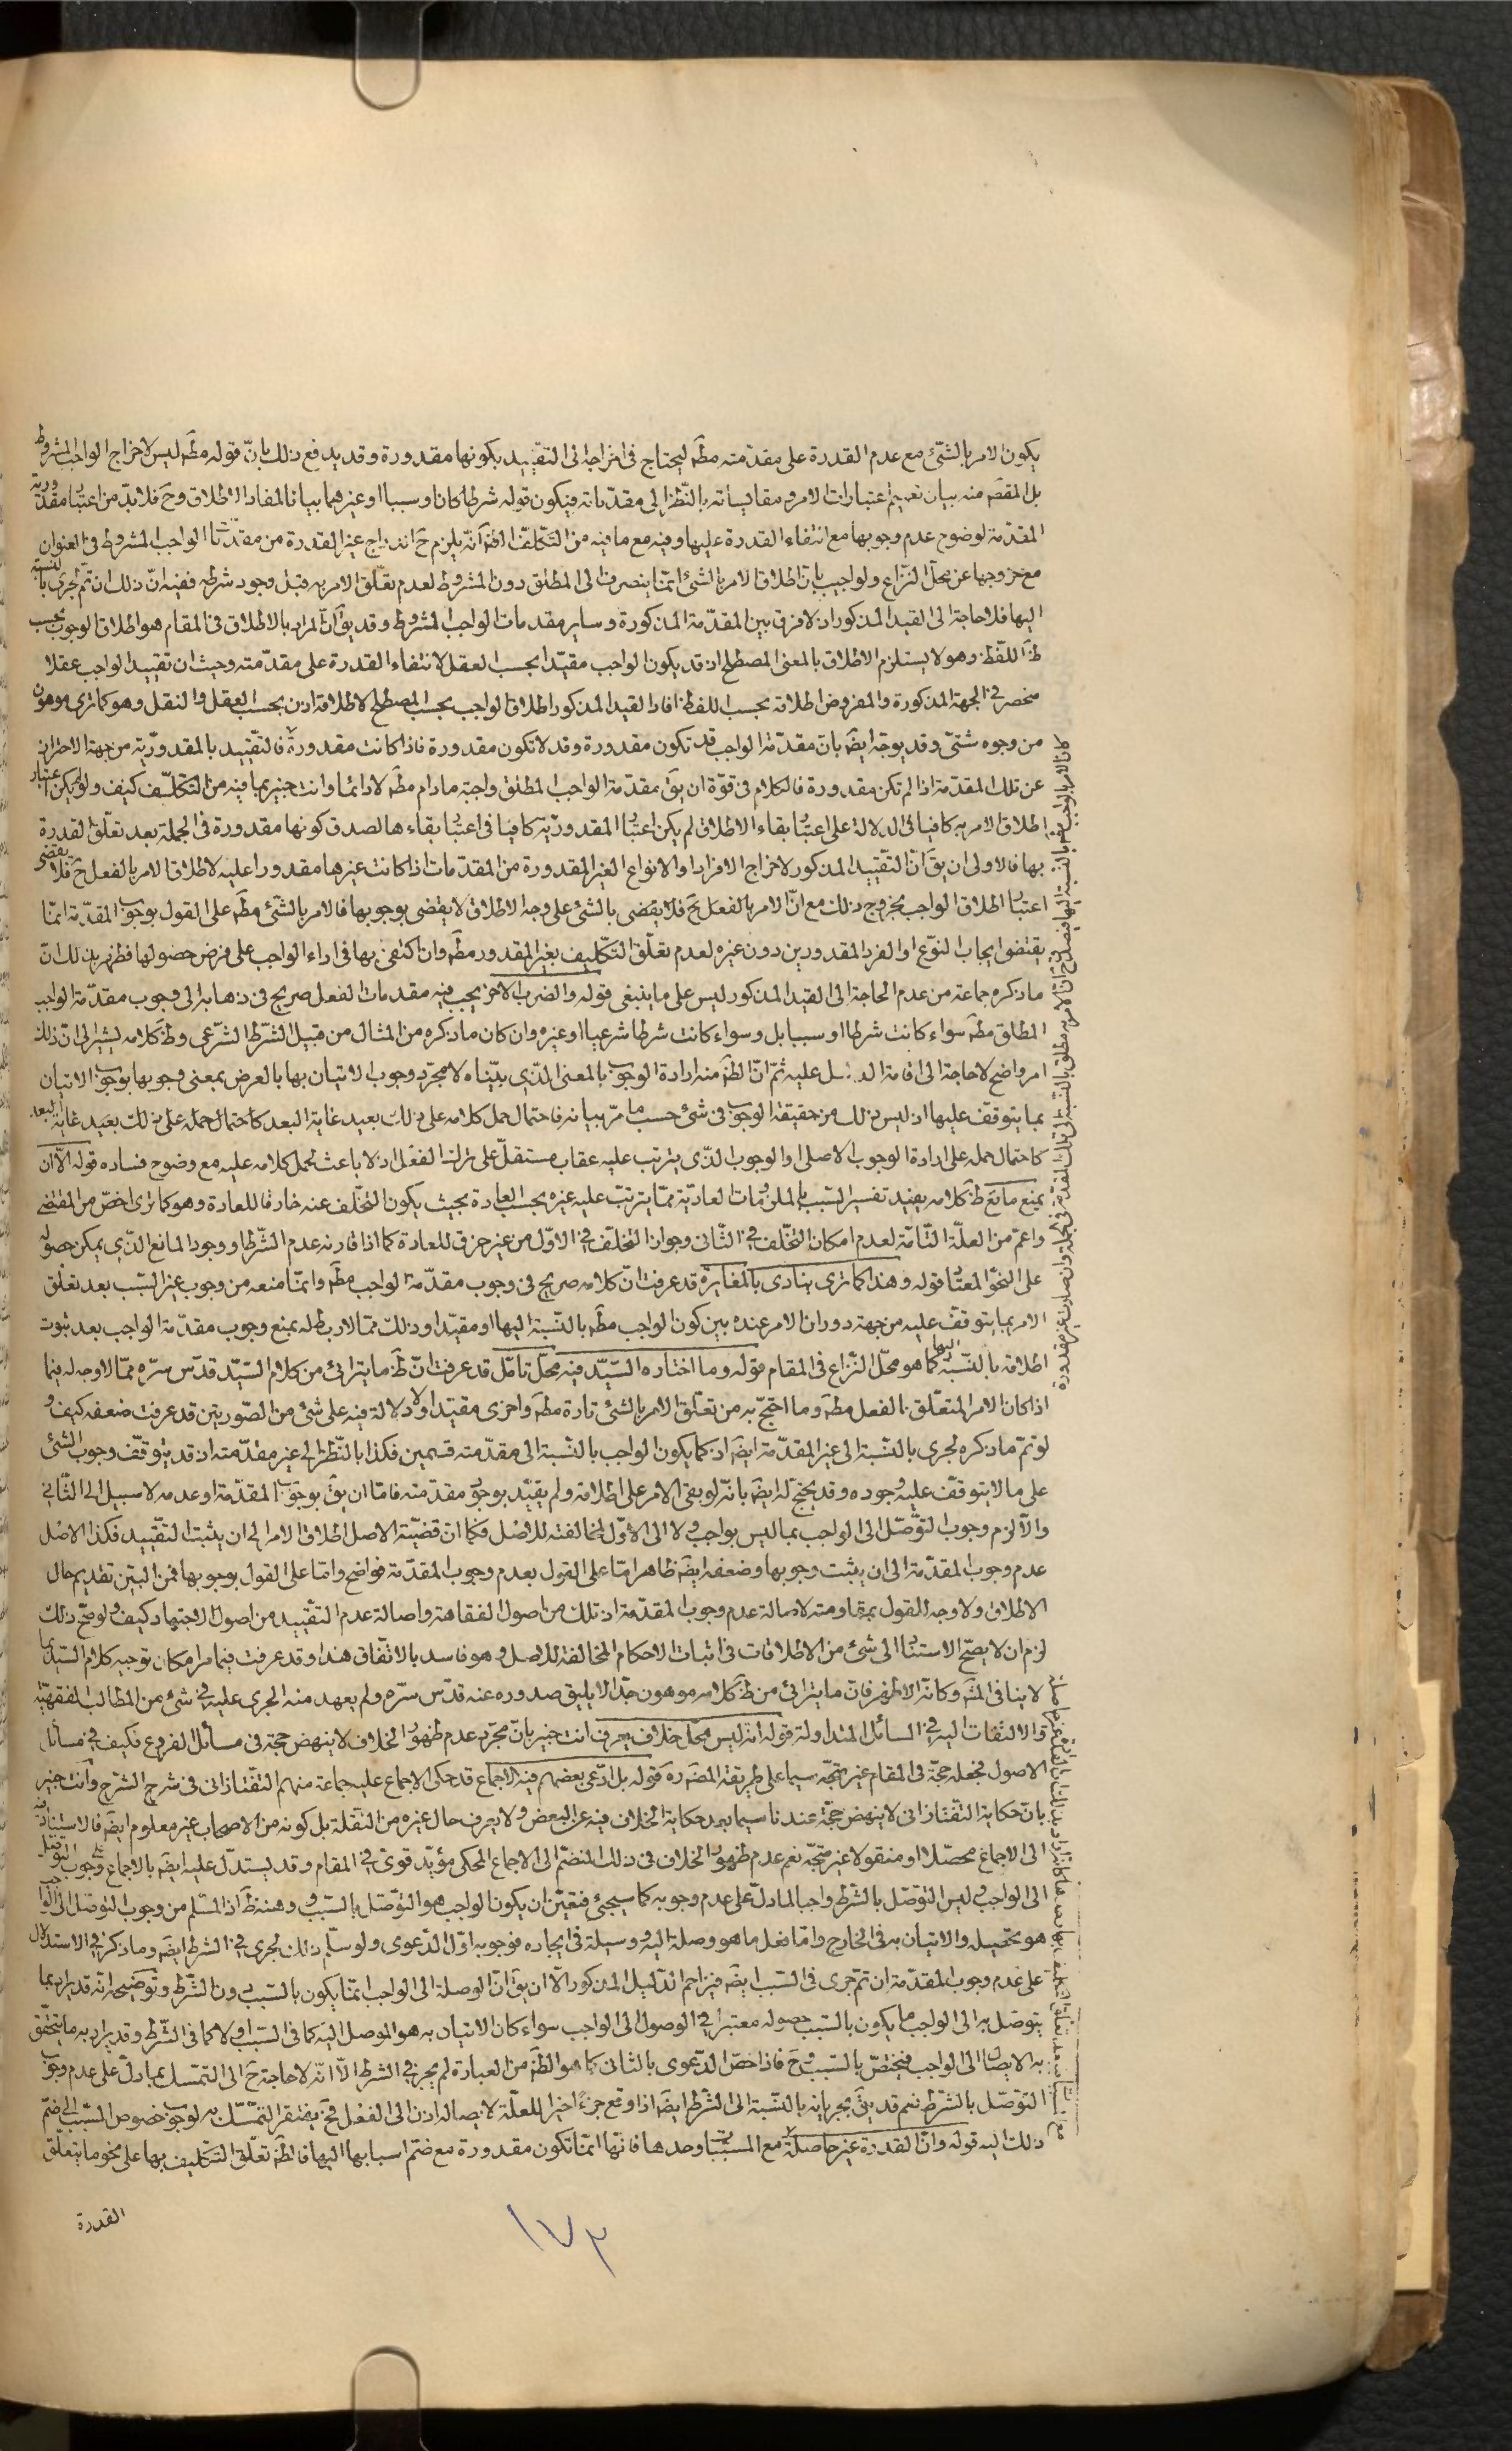 يكون الامر بالشئ مع عدم القدرة على مقدمته مطم ليحتاج فى اخراجه الى التقييد بكونها مقدورة وقد يدفع ذلك بانّ قوله مطم ليس لاخراج الواجب المشروط
بل المقصَ منه بيان تعميم اعتبارات الامر ومقايساته بالنّظر الى مقدّماته فيكون قوله شرطا كان او سببا او غيرهما بيانا لمفاد الاطلاق وحَ فلا بدّ من اعتبار مقدورية
المقدّمة لوضوح عدم وجوبها مع انتفاء القدرة عليها وفيه مع ما فيه من التّكلّف الظَ انّه يلزم حَ اندراج غير المقدورة من مقدّمات الواجب المشروط فى العنوان
مع خروجها عن محلّ النّزاع ولو اجيب بانّ اطلاق الامر بالشئ انّما ينصرف الى المطلق دون المشروط لعدم تعلّق الامر به قبل وجود شرطه ففيه انّ ذلك ان تمّ لجرى بالنّسبة
اليها فلا حاجة الى القيد المذكور اذ لا فرق بين المقدّمة المذكورة وساير مقدمات الواجب المشروط وقد يقَ انّ المراد بالاطلاق فى المقام هو اطلاق الوجوب بحسب
ظَ اللّفظ وهو لا يستلزم الاطلاق بالمعنى المصطلح اذ قد يكون الواجب مقيّدا بحسب العقل لانتفاء القدرة على مقدّمته وحيث ان تقييد الواجب عقلا
منحصر فى الجهة المذكورة والمفروض اطلاقه بحسب اللفظ افاد القيد المذكور اطلاق الواجب بحسب المصطلح لاطلاقه اذن بحسب العقل والنقل وهو كما ترى موهون
من وجوه شتّى وقد يوجّه ايضَ بانّ مقدّمة الواجب قد تكون مقدورة وقد لا تكون مقدورة فاذا كانت مقدورة فالتقييد بالمقدوريّة من جهة الاحتراز
عن تلك المقدّمة اذا لم تكن مقدورة فالكلام فى قوّة ان يقَ مقدّمة الواجب المطلق واجبة ما دام مطَم لا دائما وانت خبير بما فيه من التكلّف كيف ولو لم يكن اعتبار
اطلاق الامر به كافيا فى الدلالة على اعتبار بقاء الاطلاق لم يكن اعتبار المقدوريّة كافيا فى اعتبار بقاءها لصدق كونها مقدورة فى الجملة بعد تعلّق القدرة
بها فالاولى ان يقَ انّ التّقييد المذكور لاخراج الافراد او الانواع الغير المقدورة من المقدّمات اذا كانت غيرها مقدورا عليه لاطلاق الامر بالفعل حَ فلا يقضى
اعتبار اطلاق الواجب بخروج ذلك مع انّ الامر بالفعل حَ فلا يقضى بالشئ على وجه الاطلاق لا يقضى بوجوبها فالامر بالشئ مطَم على القول بوجوب المقدّمة انّما
يقتضى ايجاب النّوع او الفرد المقدورين دون غيره لعدم تعلّق التّكليف بغير المقدور مطَم وان اكتفى بها فى اداء الواجب على فرض حصولها فظهر بذلك انّ
ما ذكره جماعة من عدم الحاجة الى القيد المذكور ليس على ما ينبغى قوله والضرب الاخر يجب فيه مقدمات الفعل صريح فى ذهابه الى وجوب مقدّمة الواجب
المطلق مطَم سواء كانت شرطا او سببا بل وسواء كانت شرطا شرعيا او غيره وان كان ما ذكره من المثال من قبيل الشّرط الشّرعى وظَ كلامه يشير الى انّ ذلك
امر واضح لا حاجة الى اقامة الدليل عليه ثمّ انّ الظَ منه ارادة الوجوب بالمعنى الّذى بيّناه لا مجرّد وجوب الاتيان بها بالعرض بمعنى وجوبها بوجوب الاتيان
بما يتوقّف عليها اذ ليس ذلك من حقيقة الوجوب فى شئ حسب ما مرّ بيانه فاحتمال حمل كلامه على ذلك بعيد غاية البعد كاحتمال حمله على ذلك بعيد غاية البعد
كاحتمال حمله على ارادة الوجوب الاصلى او الوجوب الذّى يترتب عليه عقاب مستقلّ على ترك الفعل اذ لا باعث لحمل كلامه عليه مع وضوح فساده قوله الّا ان
يمنع مانع ظَ كلامه يفيد تفسير السّبب بالملزومات العاديّة ممّا يترتّب عليه غيره بحسب العادة بحيث يكون التخلّف عنه خارقا للعادة وهو كما ترى اخصّ من المقتضى
واعمّ من العلّة التّامّة لعدم امكان التخلّف فى الثّانى وجواز التخلّف فى الاوّل من غير خرق للعادة كما اذا قارنه عدم الشّرط او وجود المانع الذّى يمكن حصوله
على النحو المعتاد قوله وهذا كما ترى ينادى بالمغايرة قد عرفت انّ كلامه صريح فى وجوب مقدّمة الواجب مطَم وانّما منعه من وجوب غير السّبب بعد تعلّق
الامر بما يتوقّف عليه من جهة دوران الامر عنده بين كون الواجب مطَم بالنّسبة اليها او مقيّدا وذلك ممّا لا ربط له بمنع وجوب مقدّمة الواجب بعد ثبوت
اطلاقه بالنّسبة اليها كما هو محلّ النّزاع فى المقام قوله وما اختاره السّيّد فيه محلّ تامّل قد عرفت انّ ظَ ما يترائى من كلام السّيّد قدّس سرّه ممّا لا وجه له فيما
اذا كان الامر المتعلّق بالفعل مطَم وما احتجّ به من تعلّق الامر بالشئ تارة مطَم واخرى مقيّدا لا دلالة فيه على شئ من الصّورتين قد عرفت ضعفه كيف و
لو تمّ ما ذكره لجرى بالنّسبة الى غير المقدّمة ايضَ اذ كما يكون الواجب بالنّسبة الى مقدّمته قسمين فكذا بالنّظر الى غير مقدّمته اذ قد يتوقّف وجوب الشئ
على ما لا يتوقّف عليه وجوده وقد يحتج له ايضَ بانّه لو بقى الامر على اطلاقه ولم يقيّد بوجود مقدّمته فامّا ان يقَ بوجوب المقدّمة او عدمه لا سبيل الى الثّانى
والّا لزم وجوب التوصّل الى الواجب بما ليس بواجب ولا الى الاوّل لمخالفته للاصل فكما انّ قضيّة الاصل اطلاق الامر الى ان يثبت التقييد فكذا الاصل
عدم وجوب المقدّمة الى ان يثبت وجوبها وضعفه ايضَ ظاهر امّا على القول بعدم وجوب المقدّمة فواضح وامّا على القول بوجوبها فمن البيّن تقديم حال
الاطلاق ولا وجه للقول بمقاومته لاصالة عدم وجوب المقدّمة اذ تلك من اصول الفقاهة واصالة عدم التقييد من اصول الاجتهاد كيف ولو صحّ ذلك
لزم ان لا يصحّ الاستناد الى شئ من الاطلاقات فى اثبات الاحكام المخالفة للاصل وهو فاسد بالاتّفاق هذا وقد عرفت فيما مر امكان توجيه كلام السّيّد بما
لا ينافى المشَ وكانّه الاظهر فانّ ما يترائى من ظَ كلامه موهون جدّا لا يليق صدوره عنه قدّس سرّه ولم يعهد منه الجرى عليه فى شئ من المطالب الفقهيّة
والالتفات اليه فى المسائل المتداولة قوله انّه ليس محلّ خلاف يعرف انت خبير بانّ مجرّد عدم ظهور الخلاف لا ينهض حجّة فى مسائل الفروع فكيف فى مسائل
الاصول فجعله حجّة فى المقام غير متّجه سيما على طريقة المصَ ره قوله بل ادّعى بعضهم فيه الاجماع قد حكى الاجماع عليه جماعة منهم التفتازانى فى شرح الشرح وانت خبير
بانّ حكاية التّفتازانى لا ينهض حجّة عندنا سيما بعد حكاية الخلاف فيه عن البعض ولا يعرف حال غيره من النّقلة بل كونه من الاصحاب غير معلوم ايضَ فالاستناد فيه
الى الاجماع محصّلا او منقولا غير متّجه نعم عدم ظهور الخلاف فى ذلك المنضمّ الى الاجماع المحكى مؤيّد قوىّ فى المقام وقد يستدلّ عليه ايضَ بالاجماع على وجوب التوصّل
الى الواجب وليس التّوصّل بالشّرط واجبا لما دلّ على عدم وجوبه كما سيجئ فتعيّن ان يكون الواجب هو التّوصّل بالسّبب وهنه ظَ اذ المسّلم من وجوب التوصّل الى الواجب
هو تحصيله والاتيان به فى الخارج وامّا فعل ما هو وصلة اليه ووسيلة فى ايجاده فوجوبه اوّل الدّعوى ولو سلّم ذلك لجرى فى الشرط ايضَ وما ذكر فى الاستدلال
على عدم وجوب المقدّمة ان تمّ جرى فى السّبب ايضَ فيزاحم الدّليل المذكور الّا ان يقَ انّ الوصلة الى الواجب انّما يكون بالسّبب دون الشّرط وتوضيحه انّه قد يراد بما
يتوصّل به الى الواجب ما يكون بالسّبب حصوله معتبرا فى الوصول الى الواجب سواء كان الاتيان به هو الموصل اليه كما فى السّبب او لا كما فى الشّرط وقد يراد به ما يتحقّق
به الايصال الى الواجب فيختصّ بالسّبب وحَ فاذا خصّ الدّعوى بالثانى كما هو الظَ من العبارة لم يجر فى الشرط الّا انّه لا حاجة حَ الى التّمسّك بما دلّ على عدم وجوب
التّوصّل بالشّرط نعم قد يقَ بجريانه بالنّسبة الى الشّرط ايضَ اذا وقع جزءً اخيرا للعلّة لايصاله اذن الى الفعل فحَ يفتقر التمسّك به لوجوب خصوص السّبب الى ضمّ
ذلك اليه قوله وانّ القدرة غير حاصلة مع المسبّبات وحدها فانّها انّما تكون مقدورة مع ضمّ اسبابها اليها فالظَ تعلّق التّكليف بها على نحو ما يتعلّق
القدرة
١٧٣